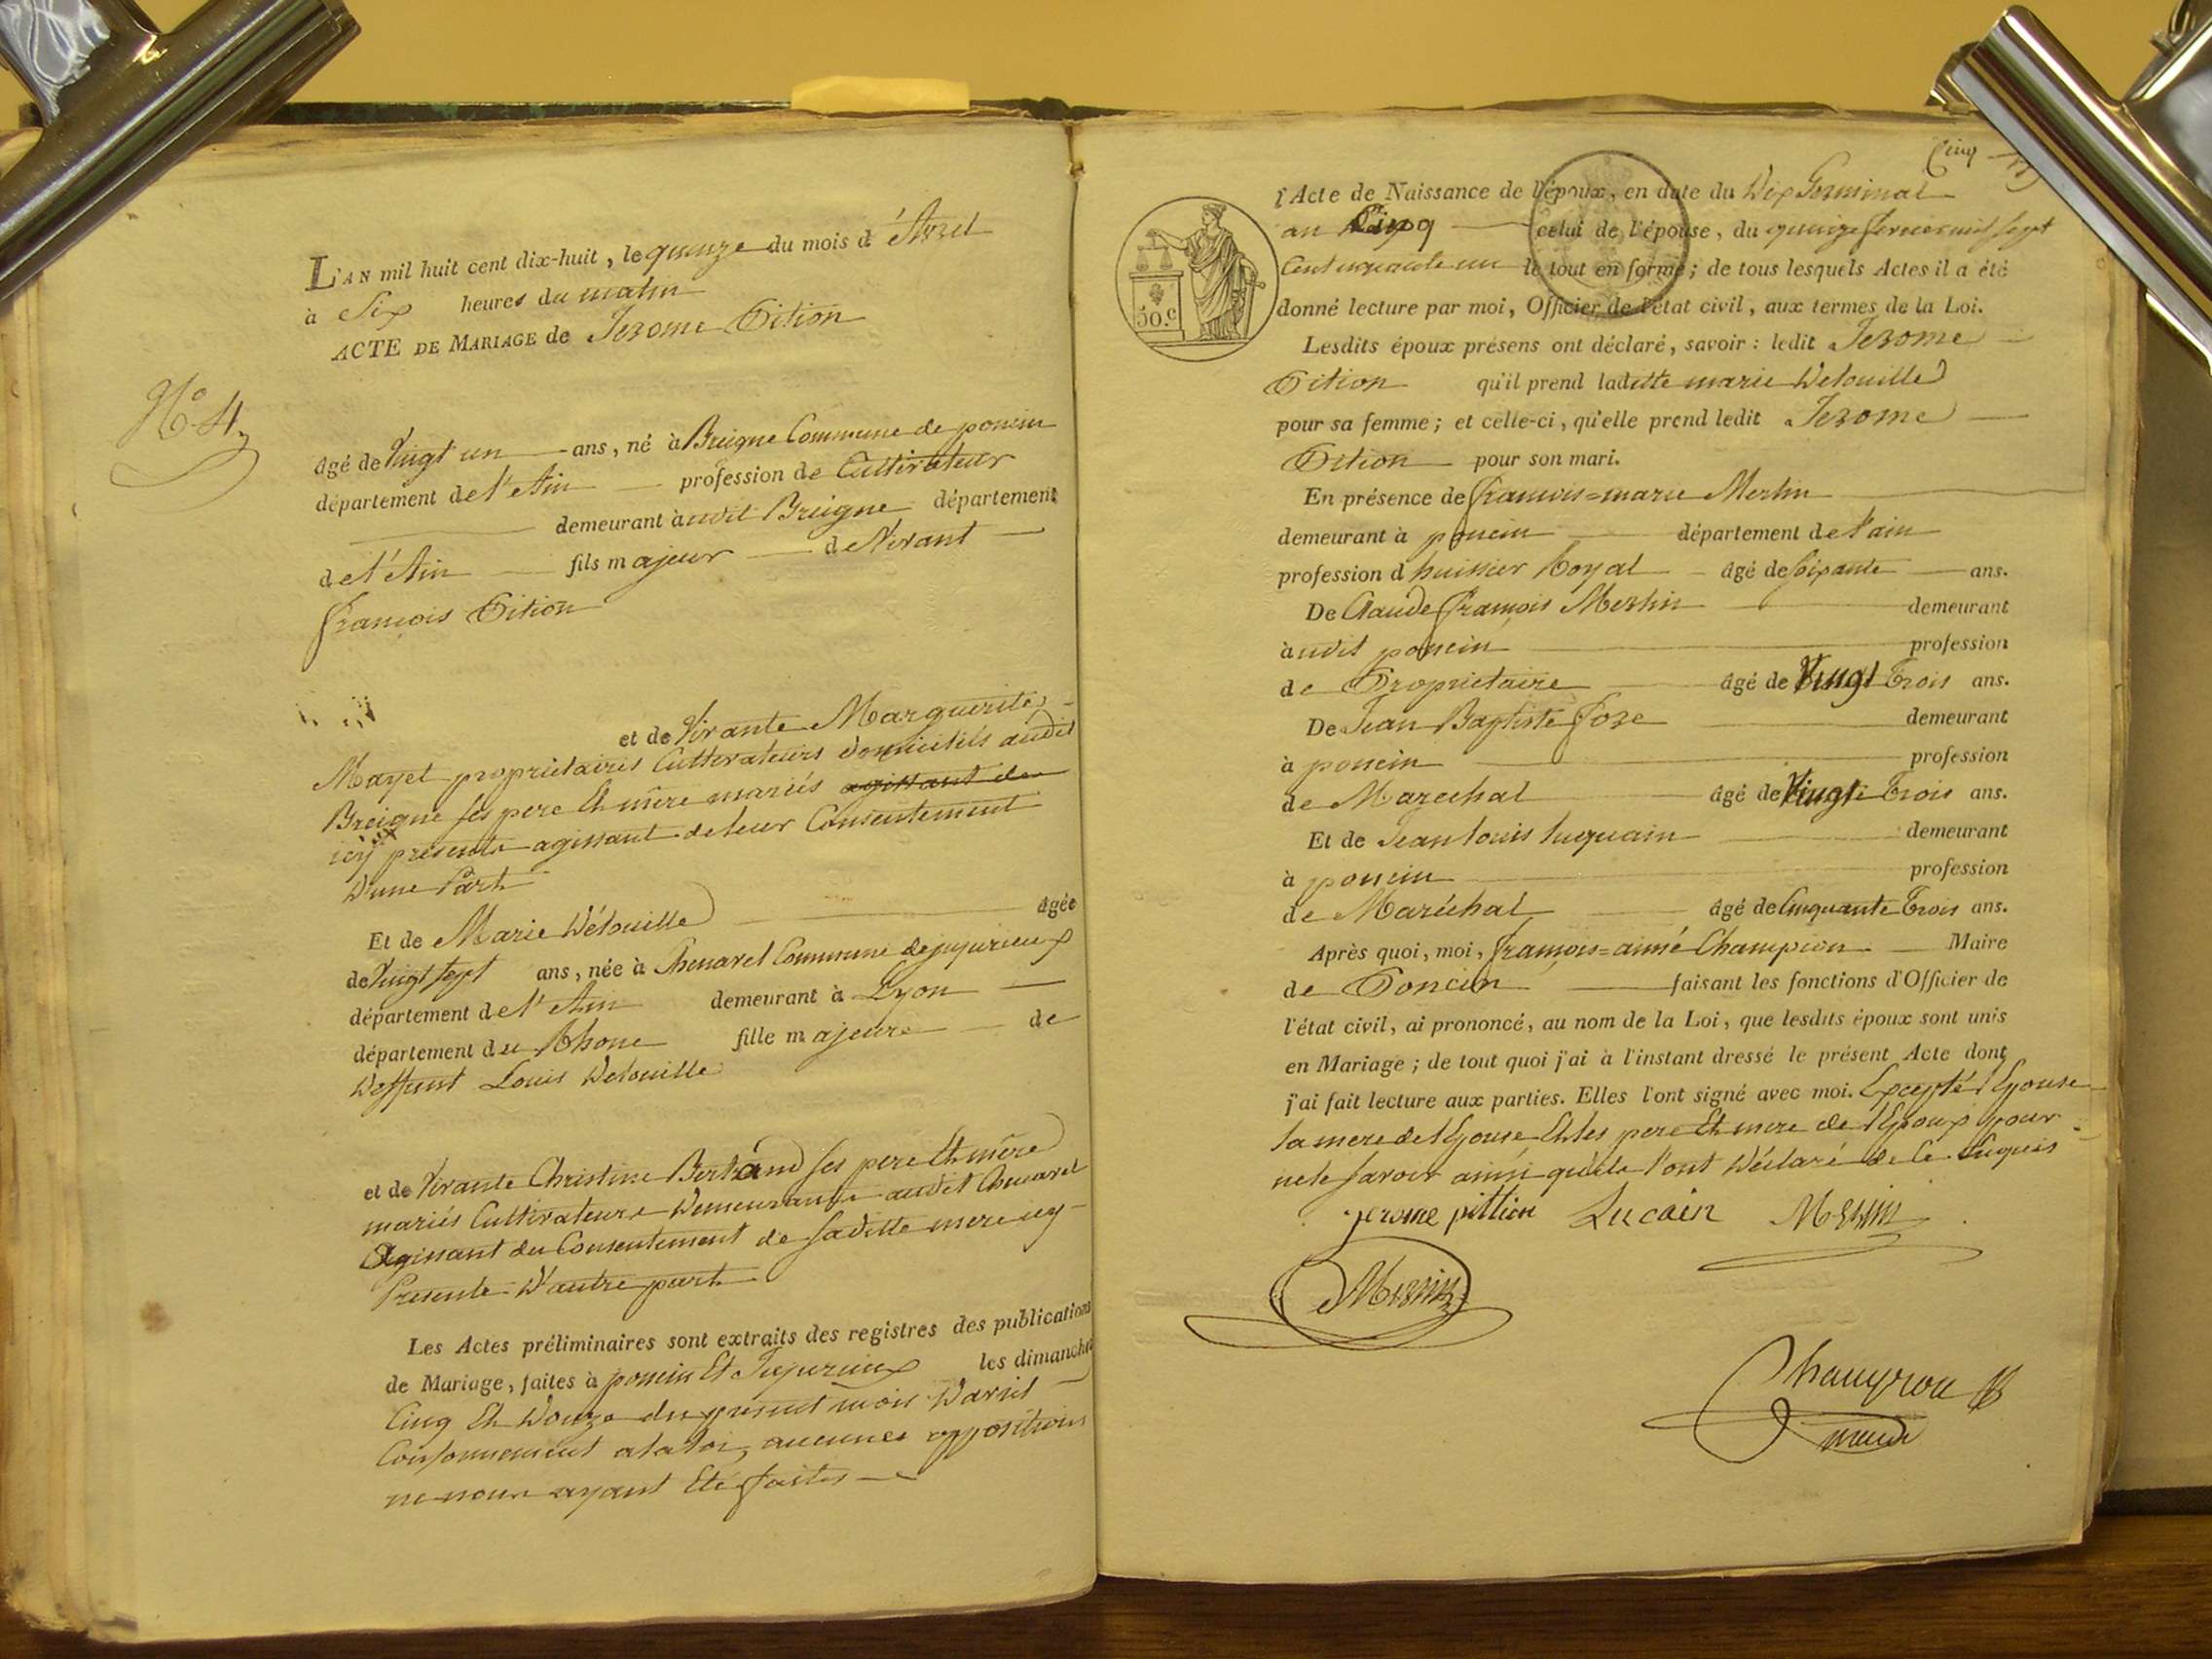 L'AN mil huit cent dix-huit, le quinze du mois d'Avril
à Six heures du matin
ACTE DE MARIAGE de Jerome Pition
N.° 4
âgé de Vingt un ans, né à Breigne Commune de poncin
département de l'Ain profession de Cultivateur
demeurant à udit Breigne département
de l'Ain fils majeur de Vivant
francois Pition
et de Vivante Marguerite
Mayet propriétaires Cultivateurs domiciliés audit
Breigne ses pere Et mere mariés agissant de
icy presents agissant de leur Consentement
D'une Part
Et de Marie Debouille âgée
de Vingt sept ans, née à Chenavel Commune de jujurieux
département de l'Ain demeurant à Lyon
département du Rhone fille majeure de
Deffunt Louis Debouille
et de Vivante Christine Bertrand ses pere Et mere
mariés Cultivateurs Demeurants audit Chenavel
Agissant du Consentement de sa ditte mere icy
Presente D'autre part
Les Actes préliminaires sont extraits des registres des publications
de Mariage, faites à poncin Et Jujurieux les dimanches
Cinq Et Douze du present mois D'avril
Conformement a la loi, aucunes oppositions
ne nous ayant Eté faites
Cinq
l'Acte de Naissance de l'époux, en date du Dix Germinal
an Cinq celui de l'épouse, du quinze mil sept
Cent le tout en forme; de tous lesquels Actes il a été
50.c
donné lecture par moi, Officier de l'état civil, aux termes de la Loi.
Lesdits époux présens ont déclaré, savoir : ledit Jerome
Pition qu'il prend laditte marie Debouille
pour sa femme; et celle-ci, qu'elle prend ledit Jerome
Pition pour son mari.
En présence de francois=marie Merlin
demeurant à poncin département de l'ain
profession d'huissier Royal âgé de soixante ans.
De Claude francois Merlin demeurant
à udit poncin profession
de Proprietaire âgé de Vingt Trois ans.
De Jean Baptiste demeurant
à poncin profession
de Marechal âgé de Vingt Trois ans.
Et de Jean louis luquain demeurant
à poncin profession
de Maréchal âgé de Cinquante Trois ans.
Après quoi, moi, francois=aimé Champion Maire
de Poncin faisant les fonctions d'Officier de
l'état civil, ai prononcé, au nom de la Loi, que lesdits époux sont unis
en Mariage; de tout quoi j'ai à l'instant dressé le présent Acte dont
j'ai fait lecture aux parties. Elles l'ont signé avec moi. Excepté l'Epouse
la mere de l'Epouse Et les pere Et mere de l'Epoux pour
ne le savoir ainsi qu'ils l'ont Déclaré de ce Enquis
jerome pittion Lucain Merlin
Merlin
Champion
maire